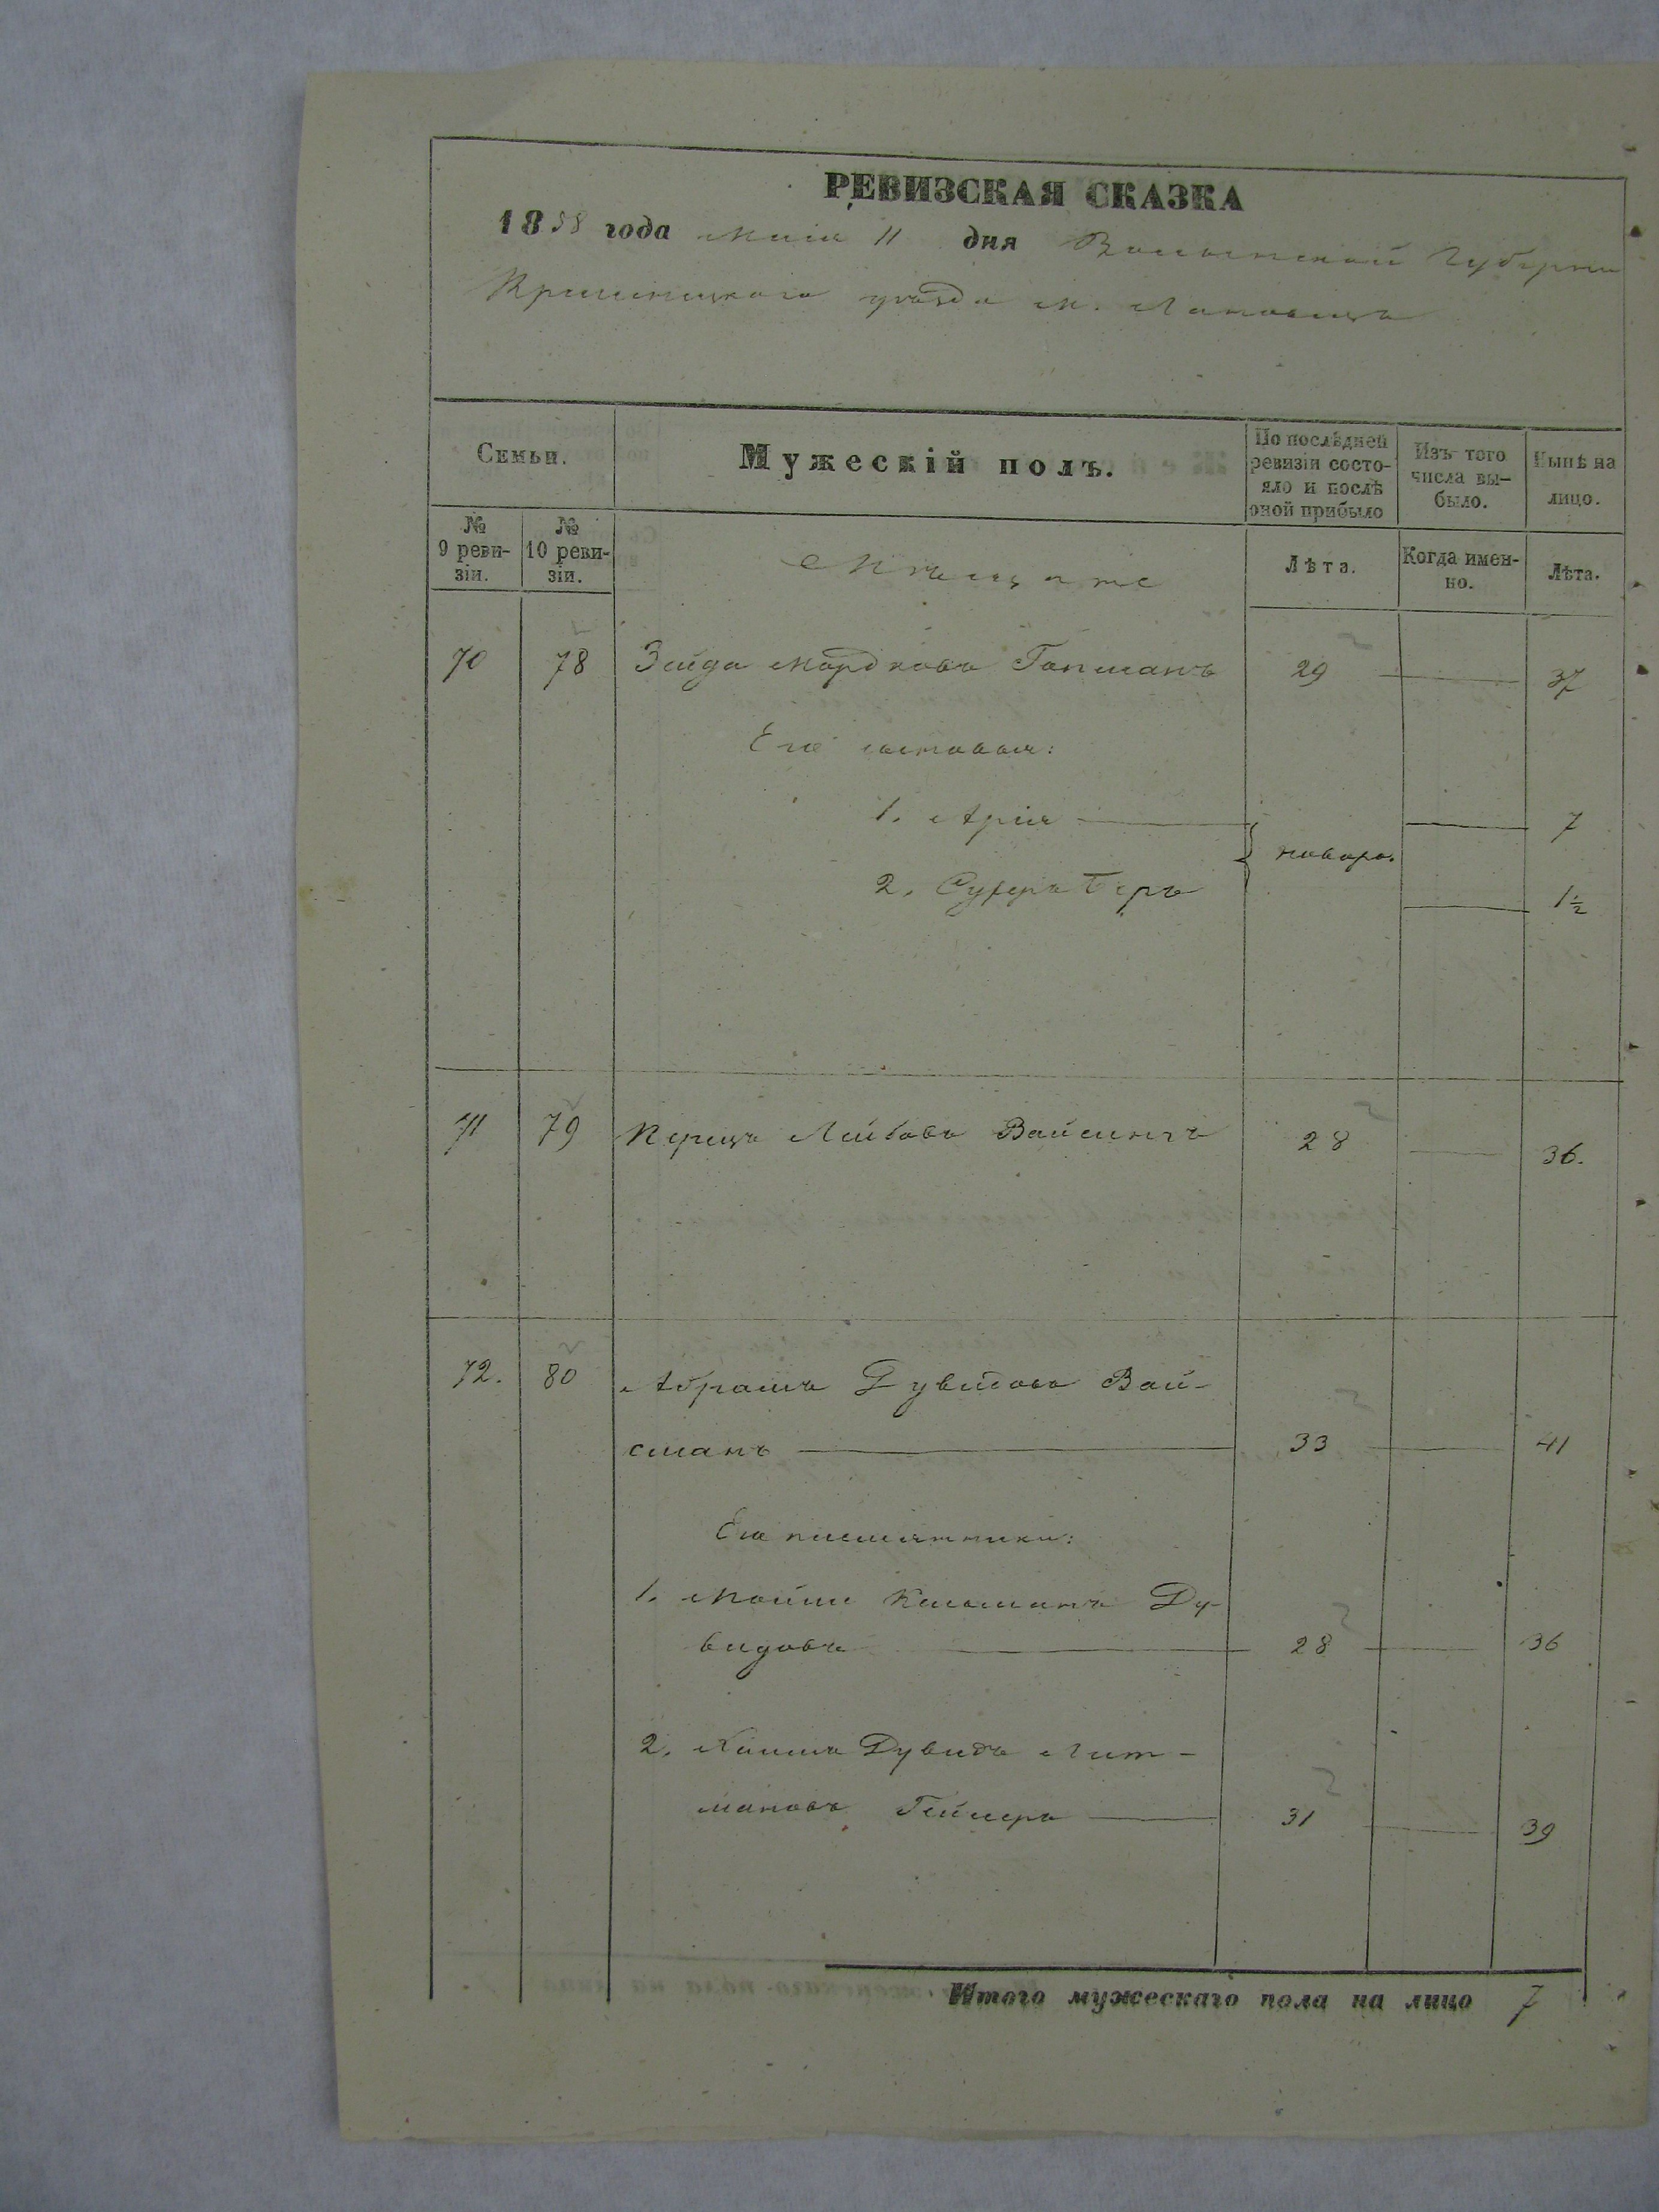 РЕВИЗСКАЯ СКАЗКА
1858 года Маія 11 дня Волынской Губерніи
Кременецкаго уѣзда м. Лановецъ
Семьи.
Мужескій полъ.
По послѣдней ревизіи состояло и послѣ оной прибыло
Изъ того числа выбыло.
Нынѣ на лицо.
№ 9 ревизіи.
№ 10 ревизіи.
Мѣщане
Лѣта.
Когда именно.
Лѣта.
70 78 Зейда Мордковъ 29 37
Его сыновья:
1. Арія 7
новоро.
2. Беръ 1½
71 79 Перецъ Лейбовъ 28 36.
72. 80 Абрамъ Дувидовъ Вай-
сманъ 33 41
Его племянники:
1. Кельманъ Ду-
видовъ 28 36
2. Хаимъ Дувидъ Лит-
мановъ 31 39
Итого мужескаго пола на лицо 7